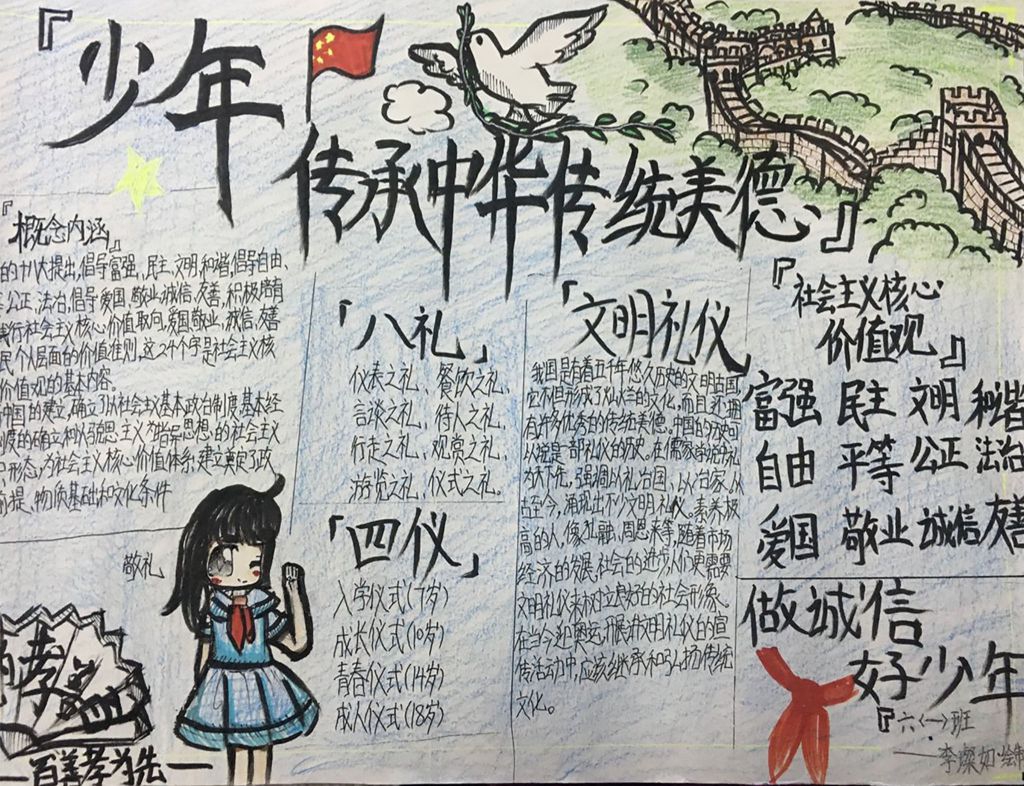 『少年
传承中华传统美德』
『概念内涵』
的十八大提出,倡导富强、民主、文明、和谐,倡导自由、
公正、法治,倡导爱国、敬业、诚信、友善,积极培育
践行社会主义核心价值取向,爱国、敬业、诚信、友善
民个人层面的价值准则,这24个字是社会主义核
价值观的基本内容。
中国的建立,确立了以社会主义基本政治制度、基本经
度的确立和以马克思主义为指导思想的社会主义
形态,为社会主义核心价值体系建立奠定了政
前提、物质基础和文化条件
敬礼
孝
—百善孝为先—
「八礼」
仪表之礼、餐饮之礼、
言谈之礼、待人之礼、
行走之礼、观赏之礼、
游览之礼、仪式之礼。
「四仪」
入学仪式(7岁)
成长仪式(10岁)
青春仪式(14岁)
成人仪式(18岁)
「文明礼仪」
我国是有着五千年悠久历史的文明古国,
它不但形成了灿烂的文化,而且还拥
有许多优秀的传统美德。中国的历史可
以说是一部礼仪的历史,在儒家
为天下先,强调以礼治国、以礼治家,从
古至今,涌现出不少文明礼仪、素养极
高的人,像孔融、周恩来等,随着市场
经济的发展,社会的进步,人们更需要
文明礼仪来树立良好的社会形象。
在当今迎奥运,开展讲文明礼仪的宣
传活动中,应该继承和弘扬传统
文化。
『社会主义核心
价值观』
富强 民主 文明 和谐
自由 平等 公正 法治
爱国 敬业 诚信 友善
做诚信
好少年
『六〈一〉班
——李璨如·绘制